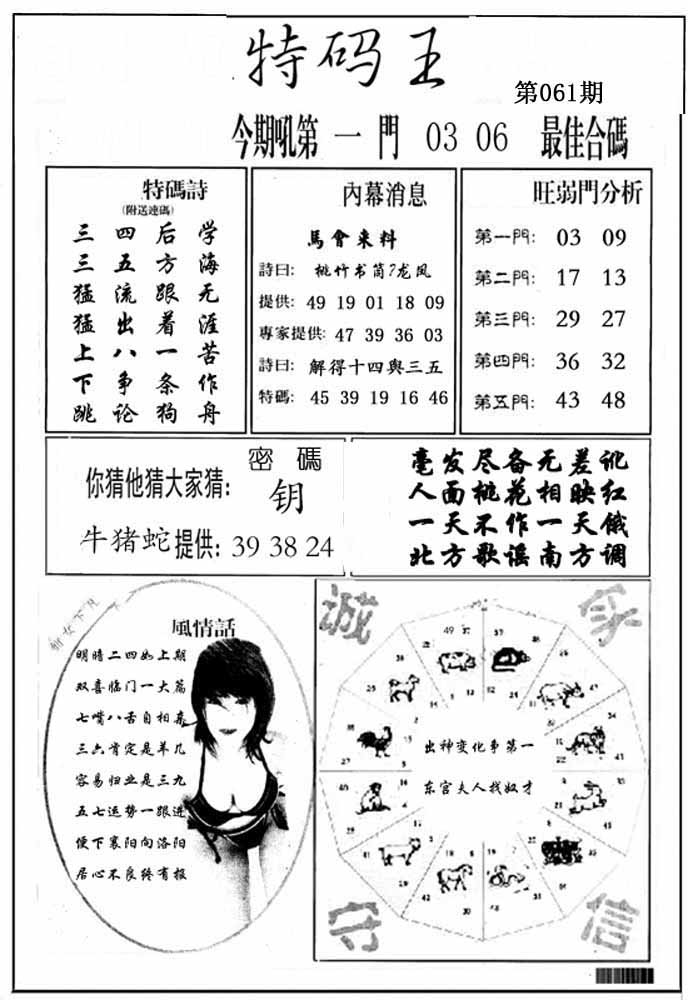 特码王
第061期
今期吼第一門 03 06 最佳合碼
特碼詩
(附送連碼)
三四后学
三五方海
猛流跟无
猛出着涯
上八一苦
下争条作
跳论狗舟
內幕消息
馬會来料
詩曰: 桃竹书简?龙凤
提供: 49 19 01 18 09
專家提供: 47 39 36 03
詩曰: 解得十四與三五
特碼: 45 39 19 16 46
旺弱門分析
第一門: 03 09
第二門: 17 13
第三門: 29 27
第四門: 36 32
第五門: 43 48
你猜他猜大家猜:
密碼
钥
牛猪蛇提供: 39 38 24
毫发尽备无差讹
人面桃花相映红
一天不作一天饿
北方歌谣南方调
風情話
明暗二四如上期
双喜临门一大篇
七嘴八舌自相
三六肯定是羊几
容易归业是三九
五七运势一跟进
便下襄阳向洛阳
居心不良终有报
诚
守
信
出神变化事第一
东宫夫人找奴才